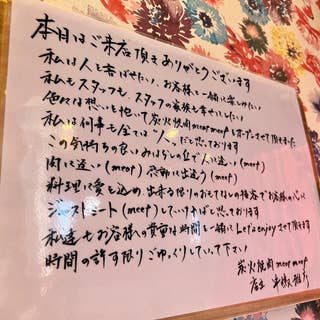 本日はご来店頂きありがとうございます
私は人を喜ばせたい、お客様と一緒に楽しみたい
私もスタッフも、スタッフの家族も幸せにしたい
色々な想いを抱いて炭火焼肉meet meetをオープンさせて頂きました
私は何事も全ては"人"だと思っております
この気持ちの良い の で人に逢い(meet)
肉に逢い(meet) に出逢う(meet)
料理に愛を込め、出来る限りのおもてなしの接客でお客様の心に
ジャストミート(meet)していければと思っております
私達もお客様の貴重な時間を一緒にLet's enjoyさせて頂きます
時間の許す限りごゆっくりしていって下さい
炭火焼肉meet meet
店主